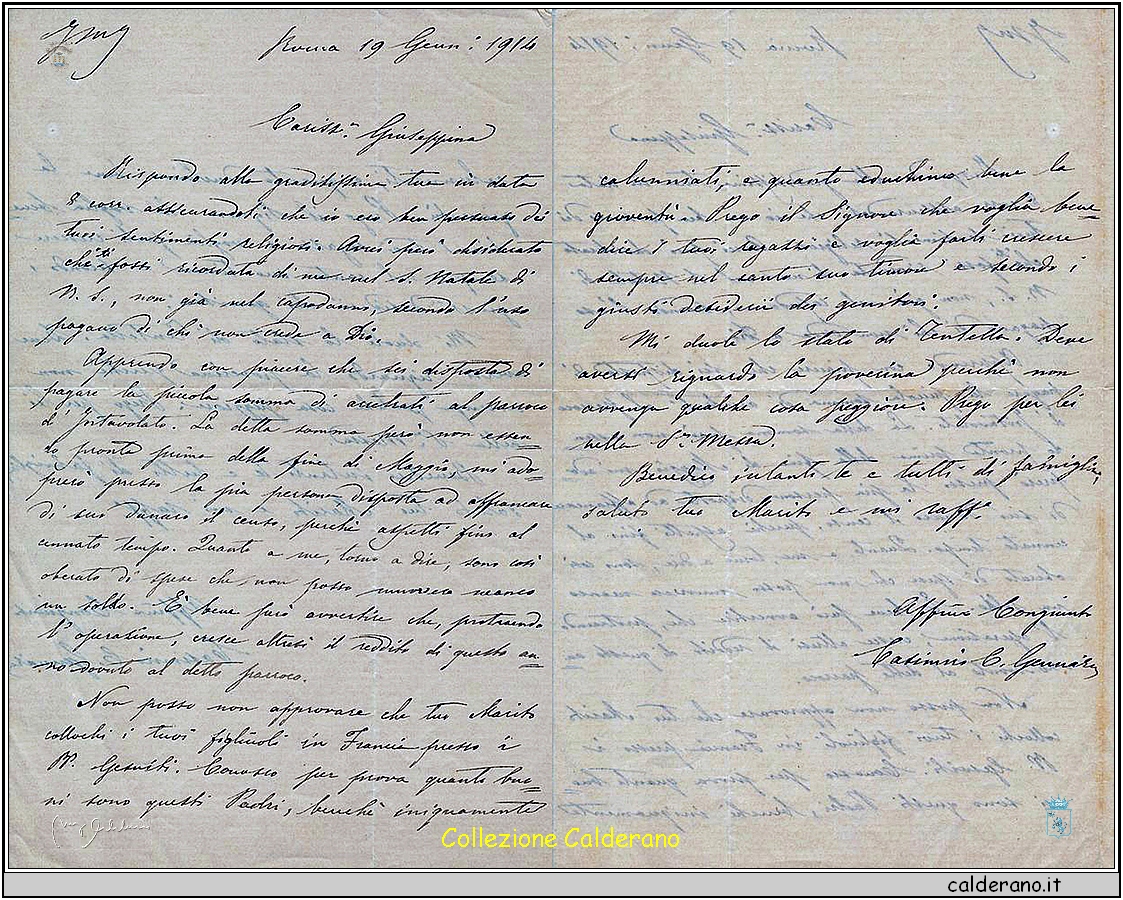 JMJ
Roma 19 Genn: 1914
Cariss.ª Giuseppina
Rispondo alla graditissima tua in data
8 corr. assicurandoti che io ero ben persuaso dei
tuoi sentimenti religiosi. Avrei però desiderato
che ti fossi ricordata di me nel S. Natale di
N. S., non già nel capodanno, secondo l'uso
pagano di chi non crede a Dio.
Apprendo con piacere che sei disposta di
pagare la piccola somma di arretrati al parroco
d'Intavolato. La detta somma però non essen=
do pronta prima della fine di Maggio, mi ado=
prerò presso la pia persona disposta ad affrancare
di suo danaro il censo, perchè aspetti fino al
cennato tempo. Quanto a me, torno a dire, sono così
oberato di spese che non posso muovere neanco
un soldo. È bene però avvertire che, protraendo
l'operazione, cresce altresì il reddito di questo an=
no dovuto al detto parroco.
Non posso non approvare che tuo Marito
collochi i tuoi figliuoli in Francia presso i
PP. Gesuiti. Conosco per prova quanto buo=
ni sono questi Padri, benchè iniquamente
calunniati, e quanto educhino bene la
gioventù. Prego il Signore che voglia bene=
dire i tuoi ragazzi e voglia farli crescere
sempre nel santo suo timore e secondo i
giusti desiderii dei genitori.
Mi duole lo stato di Tentella. Deve
aversi riguardo la poverina perchè non
avvenga qualche cosa peggiore. Prego per lei
nella S.ª Messa.
Benedico intanto te e tutti di famiglia,
saluto tuo Marito e mi raff.º
Aff.mo Congiunto
Casimiro C. Gennari
Collezione Calderano
calderano.it